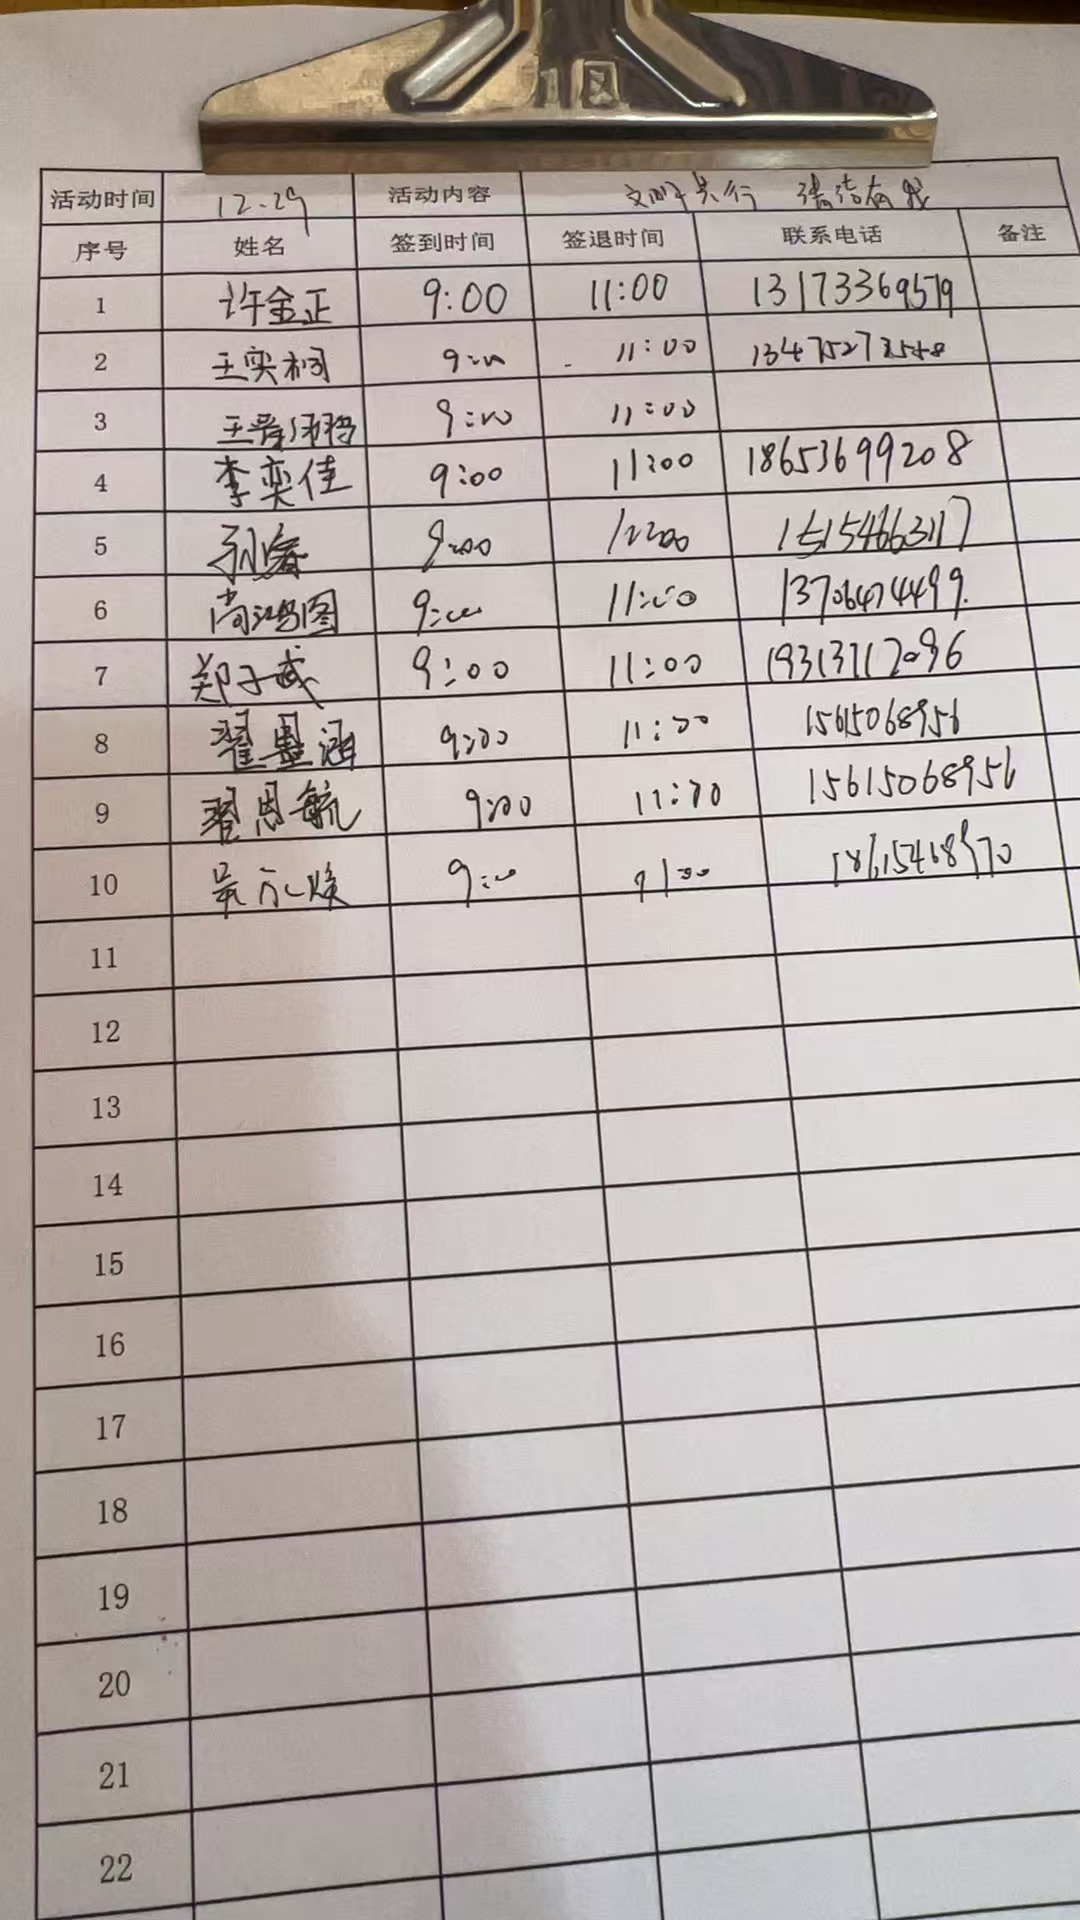 活动时间 12.29 活动内容 文明共行 清洁有我
序号 姓名 签到时间 签退时间 联系电话 备注
1 许金正 9:00 11:00 13173369579
2 王奕桐 9:00 11:00
3 9:00 11:00
4 李奕佳 9:00 11:00 18653699208
5 9:00 15154663117
6 尚鸿图 9:00 11:00 13706474499.
7 郑子彧 9:00 11:00 19313712096
8 翟墨涵 9:00 11:00 15615068956
9 翟恩毓 9:00 11:00 15615068956
10 9:00 11:00
11
12
13
14
15
16
17
18
19
20
21
22